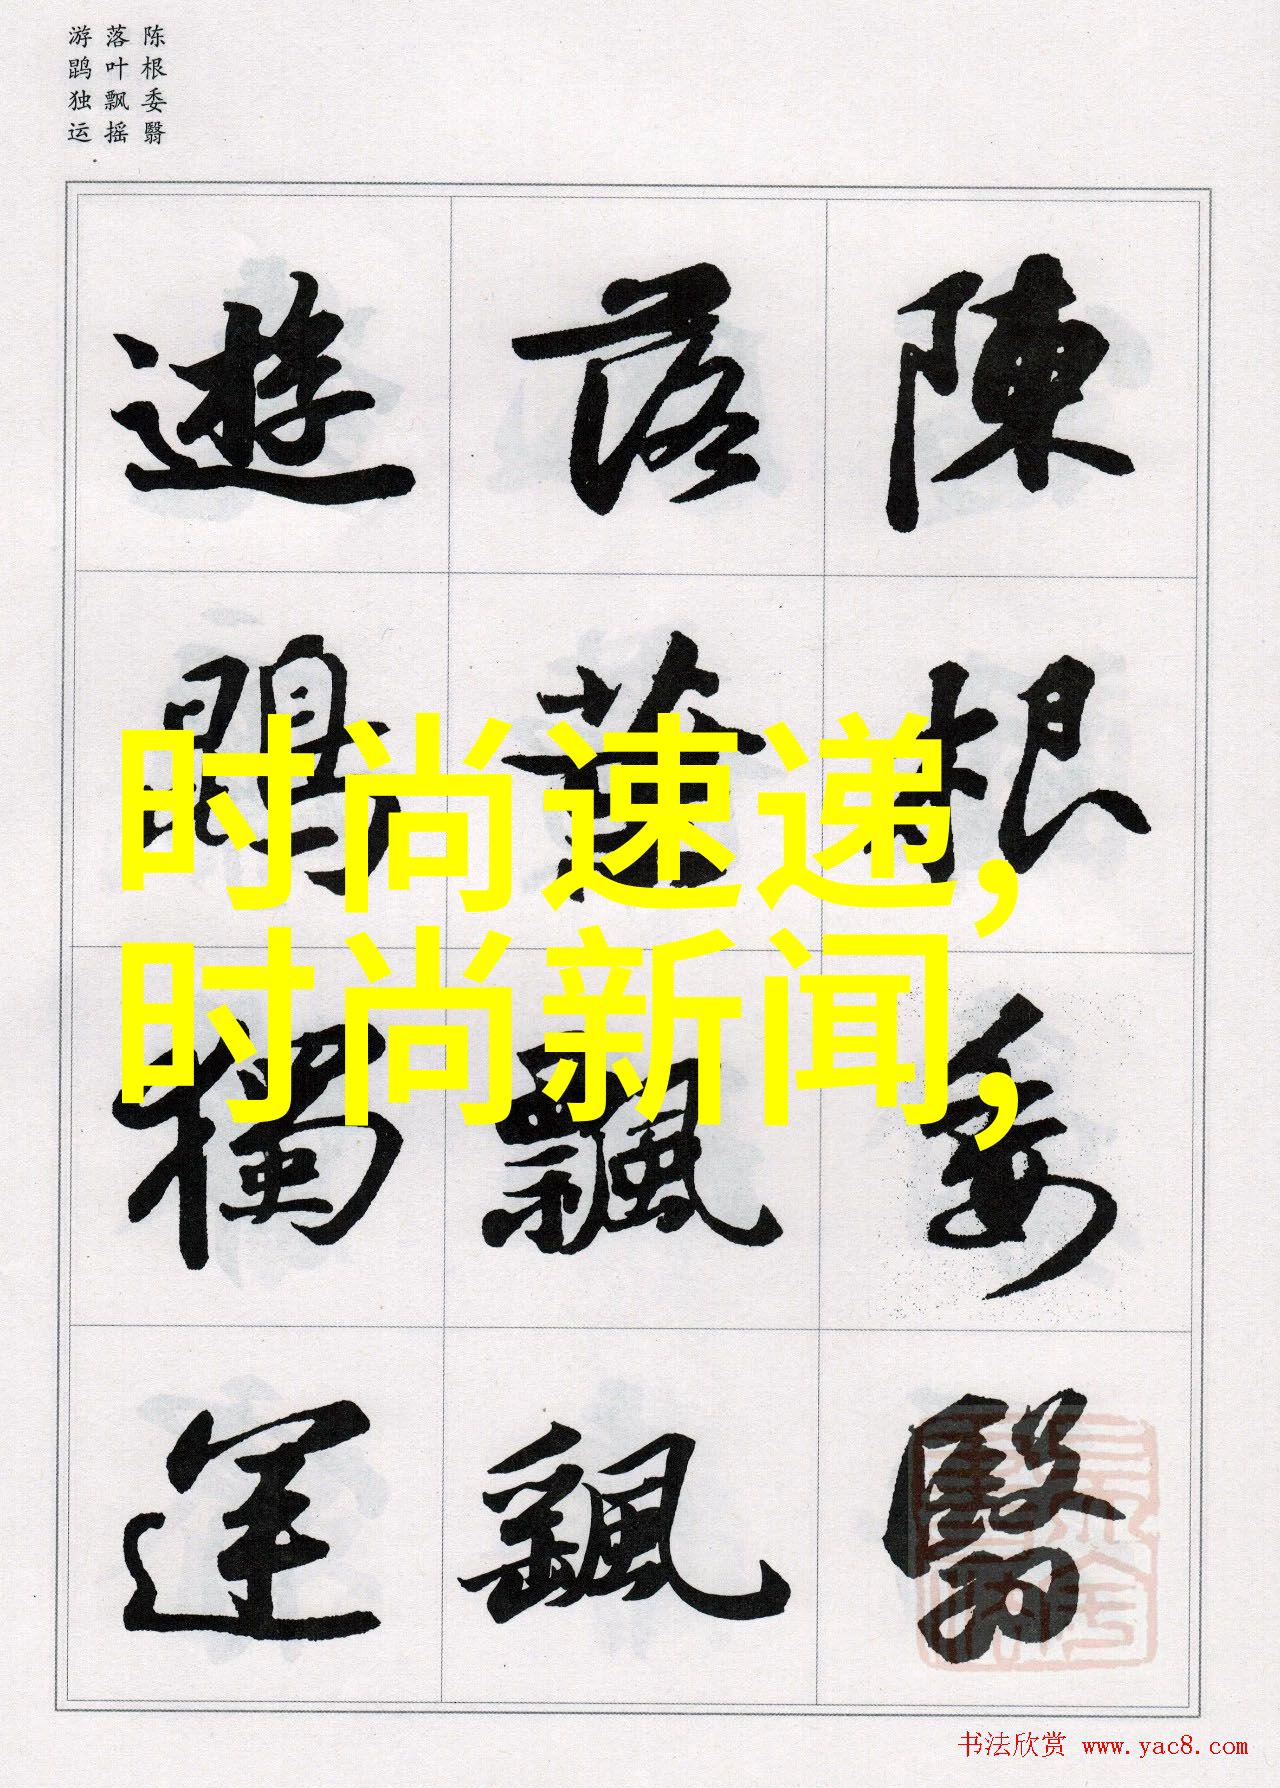 陈根委翳
落叶飘摇
游鹍独运
陳根委翳
落葉飄颻
遊鵾獨運
时尚速递,
时尚新闻,
书法欣赏 www.yac8.com